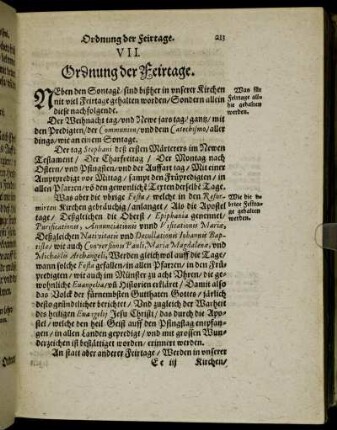 Ordnung der Feirtage. 213
VII.
Ordnung der Feirtage.
NEben den Sontagē/ sind bißher in vnserer Kirchen
nit viel Feirtage gehalten worden/ Sondern allein
diese nachfolgende.
Was für
Feirtage
die gehalten
werden.
Der Weihnacht tag/ vnd Newe jars tag/ gantz/ mit
den Predigten/ der Communion/ vnd dem Catechismo/ aller
dings/ wie an einem Sontage.
Der tag Stephani deß ersten Märterers im Newen
Testament/ Der Charfreitag/ Der Montag nach
Ostern/ vnd Pfingsten/ vnd der Auffart tag/ Mit einer
Amptpredige vor Mittag/ sampt den Früpredigten/ in
allen Pfarren/ vō den gewonlichē Texten derselbē Tage.
Was aber die vbrige Festa/ welche in den Refor-
mirten Kirchen gebräuchig/ anlanget/ Als die Apostel
tage/ Desgleichen die Oberst/ Epiphania genennet/
Purificationis, Annunciationis vnnd Visitationis Mariæ,
Deßgleichen Natiuitatis vnd Decollationis Iohannis Bap-
tistæ/ wie auch Conuersionis Pauli, Maria Magdalenæ, vnd
Michaelis Archangeli, Werden gleichwol auff die Tage/
wann solche Festa gefallen/ in allen Pfarren/ in den Früh
predigten/ wie auch im Münster zu acht Vhren/ die ge-
wohnliche Euangelia/ vn̄ Historien erkläret/ Damit also
das Volck der fürnembsten Gutthaten Gottes/ järlich
desto gründlicher berichtet/ Vnd zugleich der Warheit
des heiligen Euangelij Jesu Christi/ das durch die Apo-
stel/ welche den heil. Geist auff den Pfingstag empfan-
gen/ in allen Landen geprediget/ vnd mit grossen Wun-
derzeichen ist bestättiget worden/ erinnert werden.
Wie die v-
brige Feirta-
ge gehalten
werden.
An statt aber anderer Feirtage/ Werden in vnserer
Ee iij Kirchen/